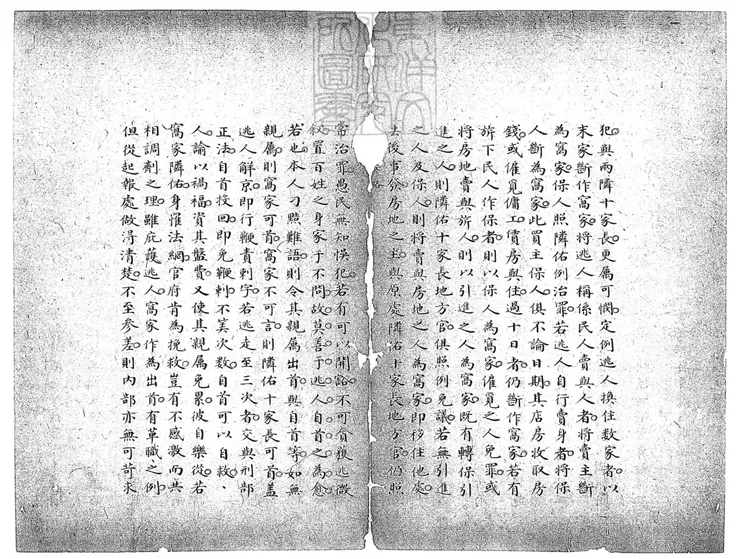 犯與兩隣十家長更屬可憫定例逃人換住數家者以
末家斷作窩家將逃人稱係民人賣與人者將賣主斷
為窩家保人照隣佑例治罪若逃人自行賣身者將保
人斷為窩家此買主保人俱不論日期其店房收取房
錢或僱覓傭工賃房與住過十日者仍斷作窩家若有
旂下民人作保者則以保人為窩家僱覓之人免罪或
將房地賣與旂人則以引進之人為窩家既有轉保引
進之人則隣佑十家長地方官俱照例免議若無引進
之人及保人則將賣與房地之人為窩家即移住他處
去後事發房地之主與原處隣佑十家長地方官仍照
常治罪愚民無知悞犯若有可以開豁不可貪獲逃微
叙置百姓之身家于不問故莫善于逃人自首之為愈
若也本人刁照難語則令其親屬出首與自首等如無
親屬則窩家可首窩家不可言則隣佑十家長可首蓋
逃人解京即行鞭責刺字若逃走至三次者交與刑部
正法自首投回即免鞭刺不筭次數自首可以自救
人諭以禍福資其盤費又使其親屬免累彼自樂從若
窩家隣佑身罹法網官府肯為挽救豈有不感激而共
相調劑之理雖庇護逃人窩家作為出首有革職之例
但從起報處做得清楚不至參差則內部亦無可苛求